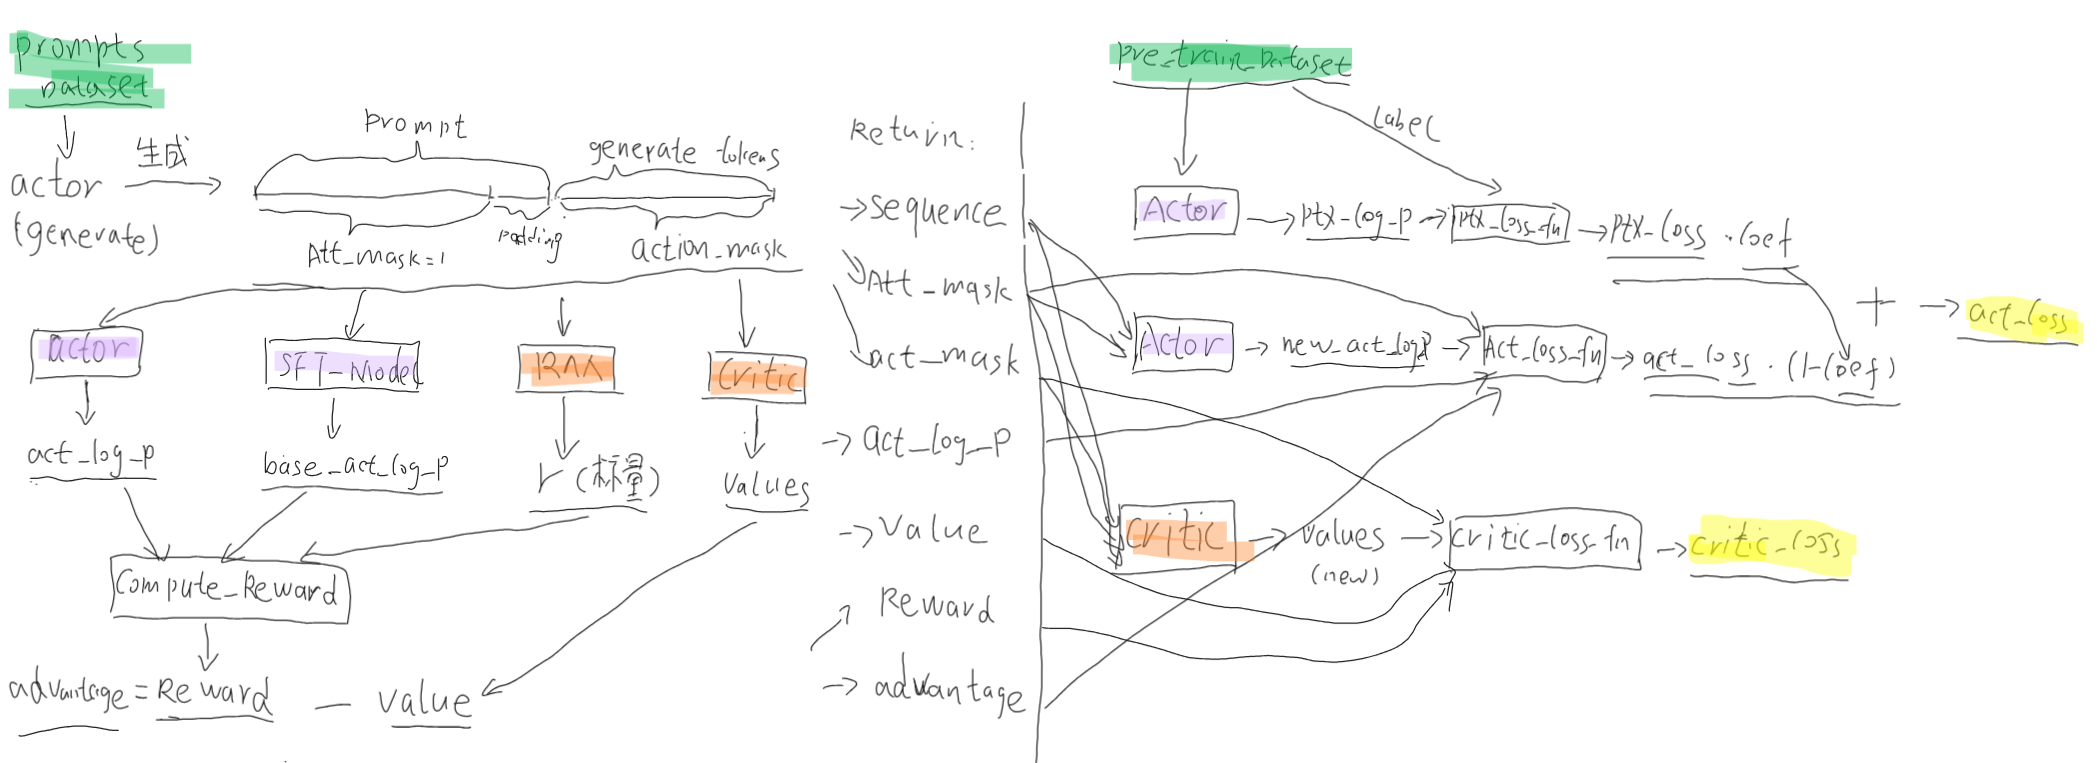 prompts
Dataset
actor
(generate)
生成
prompt
generate tokens
Att_mask=1
padding
action_mask
actor
SFT_Model
RM
Critic
act_log_p
base_act_log_p
r (标量)
Values
Compute_Reward
advantage = Reward — value
Return:
→ sequence
Att_mask
act_mask
→ act_log_p
→ Value
Reward
→ advantage
pre_train_Dataset
Label
Actor → ptx_log_p → ptx_loss_fn → ptx_loss · Coef
Actor → new_act_logp → Act_loss_fn → act_loss · (1-Coef)
+ → act_loss
Critic → values → critic_loss_fn → critic_loss
(new)